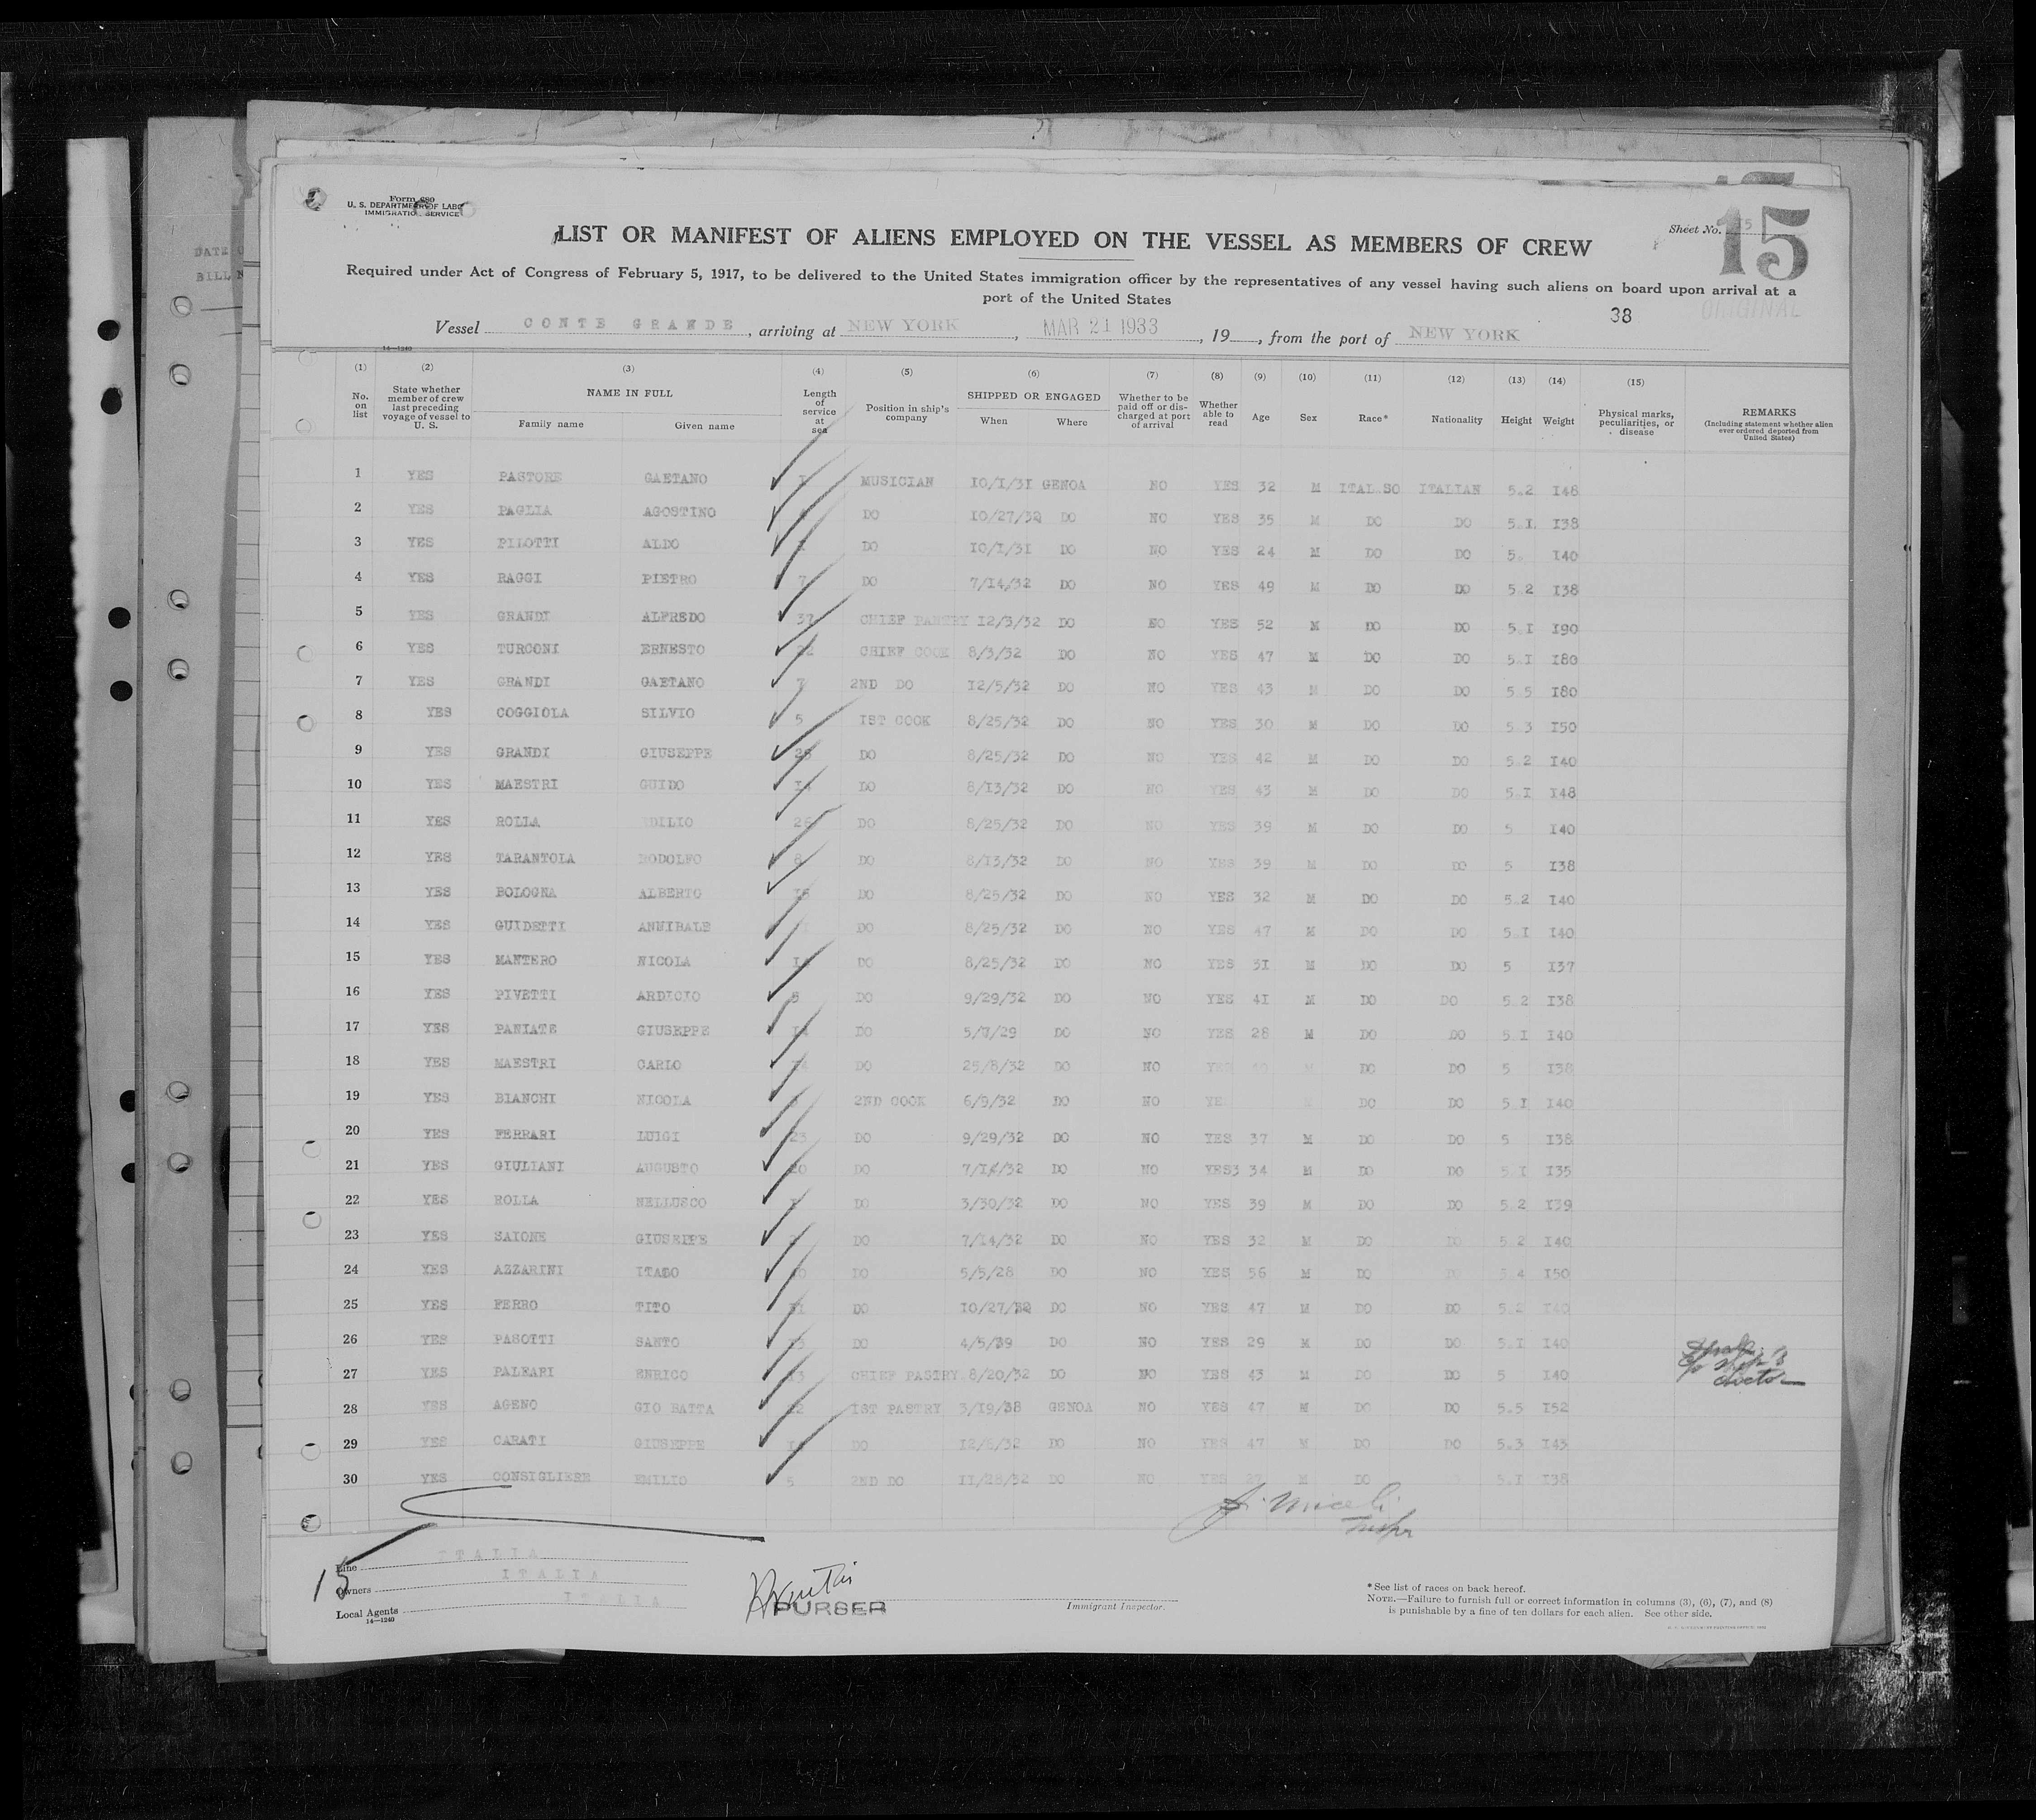 DATE
BILL
Form 680
U. S. DEPARTMENT OF LABOR
IMMIGRATION SERVICE
Sheet No. 15
15
LIST OR MANIFEST OF ALIENS EMPLOYED ON THE VESSEL AS MEMBERS OF CREW
Required under Act of Congress of February 5, 1917, to be delivered to the United States immigration officer by the representatives of any vessel having such aliens on board upon arrival at a
port of the United States
38 ORIGINAL
Vessel CONTE GRANDE, arriving at NEW YORK, MAR 21 1933, 19, from the port of NEW YORK
14—1240
(1) (2) (3) (4) (5) (6) (7) (8) (9) (10) (11) (12) (13) (14) (15)
No. on list State whether member of crew last preceding voyage of vessel to U. S. NAME IN FULL Family name Given name Length of service at sea Position in ship's company SHIPPED OR ENGAGED When Where Whether to be paid off or discharged at port of arrival Whether able to read Age Sex Race* Nationality Height Weight Physical marks, peculiarities, or disease REMARKS (Including statement whether alien ever ordered deported from United States)
1 YES PASTORE GAETANO MUSICIAN 10/1/31 GENOA NO YES 32 M ITAL.SO ITALIAN 5.2 148
2 YES PAGLIA AGOSTINO DO 10/27/32 DO NO YES 35 M DO DO 5.1 138
3 YES PILOTTI ALDO DO 10/1/31 DO NO YES 24 M DO DO 5. 140
4 YES RAGGI PIETRO 7 DO 7/14/32 DO NO YES 49 M DO DO 5 2 138
5 YES GRANDI ALFREDO 37 CHIEF PASTRY 12/3/32 DO NO YES 52 M DO DO 5.1 190
6 YES TURCONI ERNESTO 22 CHIEF COOK 8/3/32 DO NO YES 47 M DO DO 5.1 180
7 YES GRANDI GAETANO 7 2ND DO 12/5/32 DO NO YES 43 M DO DO 5.5 180
8 YES COGGIOLA SILVIO 5 1ST COOK 8/25/32 DO NO YES 30 M DO DO 5.3 150
9 YES GRANDI GIUSEPPE DO 8/25/32 DO NO YES 42 M DO DO 5.2 140
10 YES MAESTRI GUIDO 14 DO 8/13/32 DO NO YES 43 M DO DO 5.1 148
11 YES ROLLA DO 8/25/32 DO NO YES 39 M DO DO 5 140
12 YES TARANTOLA RODOLFO 8 DO 8/13/32 DO NO YES 39 M DO DO 5 138
13 YES BOLOGNA ALBERTO DO 8/25/32 DO NO YES 32 M DO DO 5 2 140
14 YES GUIDETTI ANNIBALE DO 8/25/32 DO NO YES 47 M DO DO 5.1 140
15 YES MANTERO NICOLA 14 DO 8/25/32 DO NO YES 31 M DO DO 5 137
16 YES PIVETTI ARDICIO DO 9/29/32 DO NO YES 41 M DO DO 5 2 138
17 YES PANIATE GIUSEPPE DO 5/7/29 DO NO YES 28 M DO DO 5.1 140
18 YES MAESTRI CARLO DO 25/8/32 DO NO YES M DO DO 5 138
19 YES BIANCHI NICOLA 2ND COOK 6/9/32 DO NO YES DO DO 5.1 140
20 YES FERRARI LUIGI 23 DO 9/29/32 DO NO YES 37 M DO DO 5 138
21 YES GIULIANI AUGUSTO DO 7/14/32 DO NO YES3 34 M DO DO 5 1 135
22 YES ROLLA NELLUSCO DO 3/30/32 DO NO YES 39 M DO DO 5.2 139
23 YES SAIONE GIUSEPPE DO 7/14/32 DO NO YES 32 M DO DO 5 2 140
24 YES AZZARINI ITALO DO 5/5/28 DO NO YES 56 M DO 5 4 150
25 YES FERRO TITO DO 10/27/32 DO NO YES 47 M DO DO 5.2 140
26 YES PASOTTI SANTO DO 4/5/39 DO NO YES 29 M DO DO 5.1 140
27 YES PALEARI ENRICO 13 CHIEF PASTRY 8/20/32 DO NO YES 43 M DO DO 5 140
28 YES AGENO GIO BATTA 1ST PASTRY 3/19/38 GENOA NO YES 47 M DO DO 5.5 152
29 YES CARATI GIUSEPPE DO 12/6/32 DO NO YES 47 M DO DO 5.3 143
30 YES CONSIGLIERE EMILIO 5 2ND DO 11/28/32 DO NO YES 27 M DO 5.1 138
ship's
doctor
Miceli
15
Line ITALIA
Owners ITALIA
Local Agents ITALIA
14—1240
PURSER
Immigrant Inspector.
* See list of races on back hereof.
NOTE.—Failure to furnish full or correct information in columns (3), (6), (7), and (8)
is punishable by a fine of ten dollars for each alien. See other side.